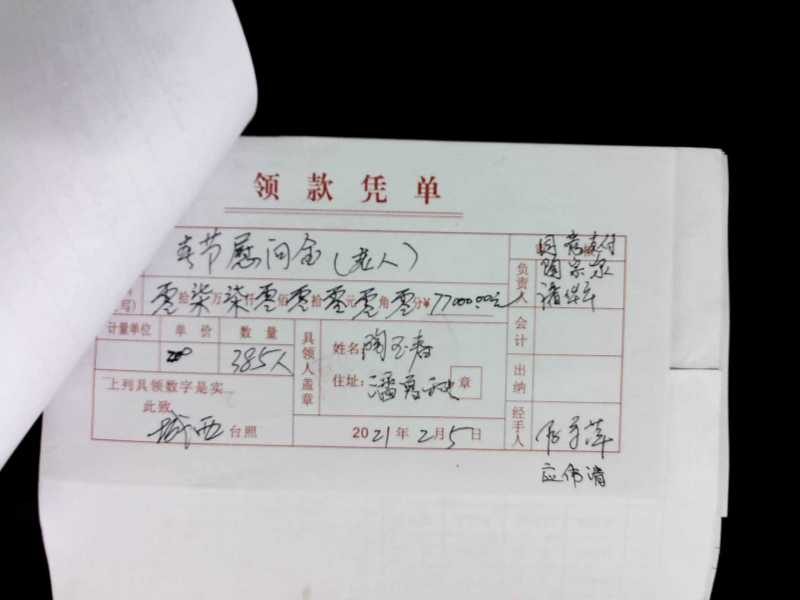 领款凭单
春节慰问金(老人)
零拾柒万柒仟零佰零拾零元零角零分¥77000.00元
计量单位 单价 数量
200 385人
上列具领数字是实
此致
城西 台照
具领人盖章
姓名:陶玉春
住址:潘 章
2021年2月5日
负责人
会计
出纳
经手人
应伟清